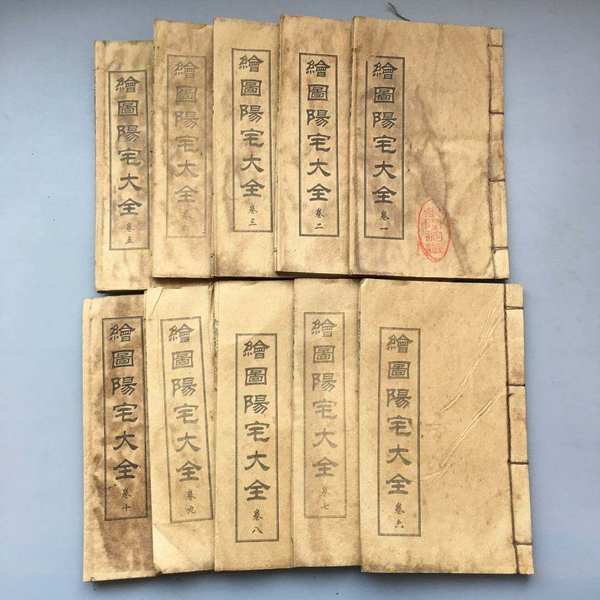 繪圖陽宅大全 卷一
繪圖陽宅大全 卷二
繪圖陽宅大全 卷三
繪圖陽宅大全
繪圖陽宅大全 卷五
繪圖陽宅大全 卷六
繪圖陽宅大全 卷七
繪圖陽宅大全 卷八
繪圖陽宅大全 卷九
繪圖陽宅大全 卷十